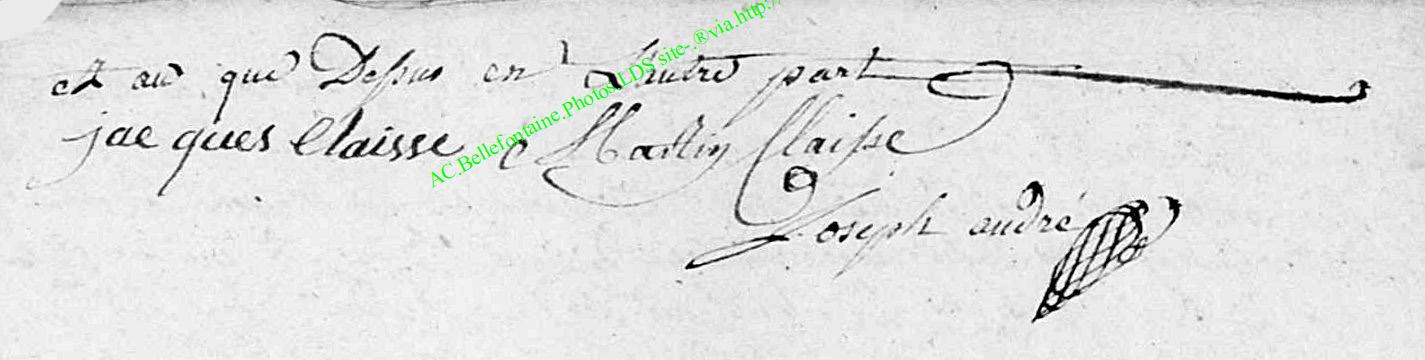 et au que Dessus en Lautre part
jacques Claisse Martin Claisse
Joseph andré
AC.Bellefontaine.Photos.LDS site-.®via.http:/